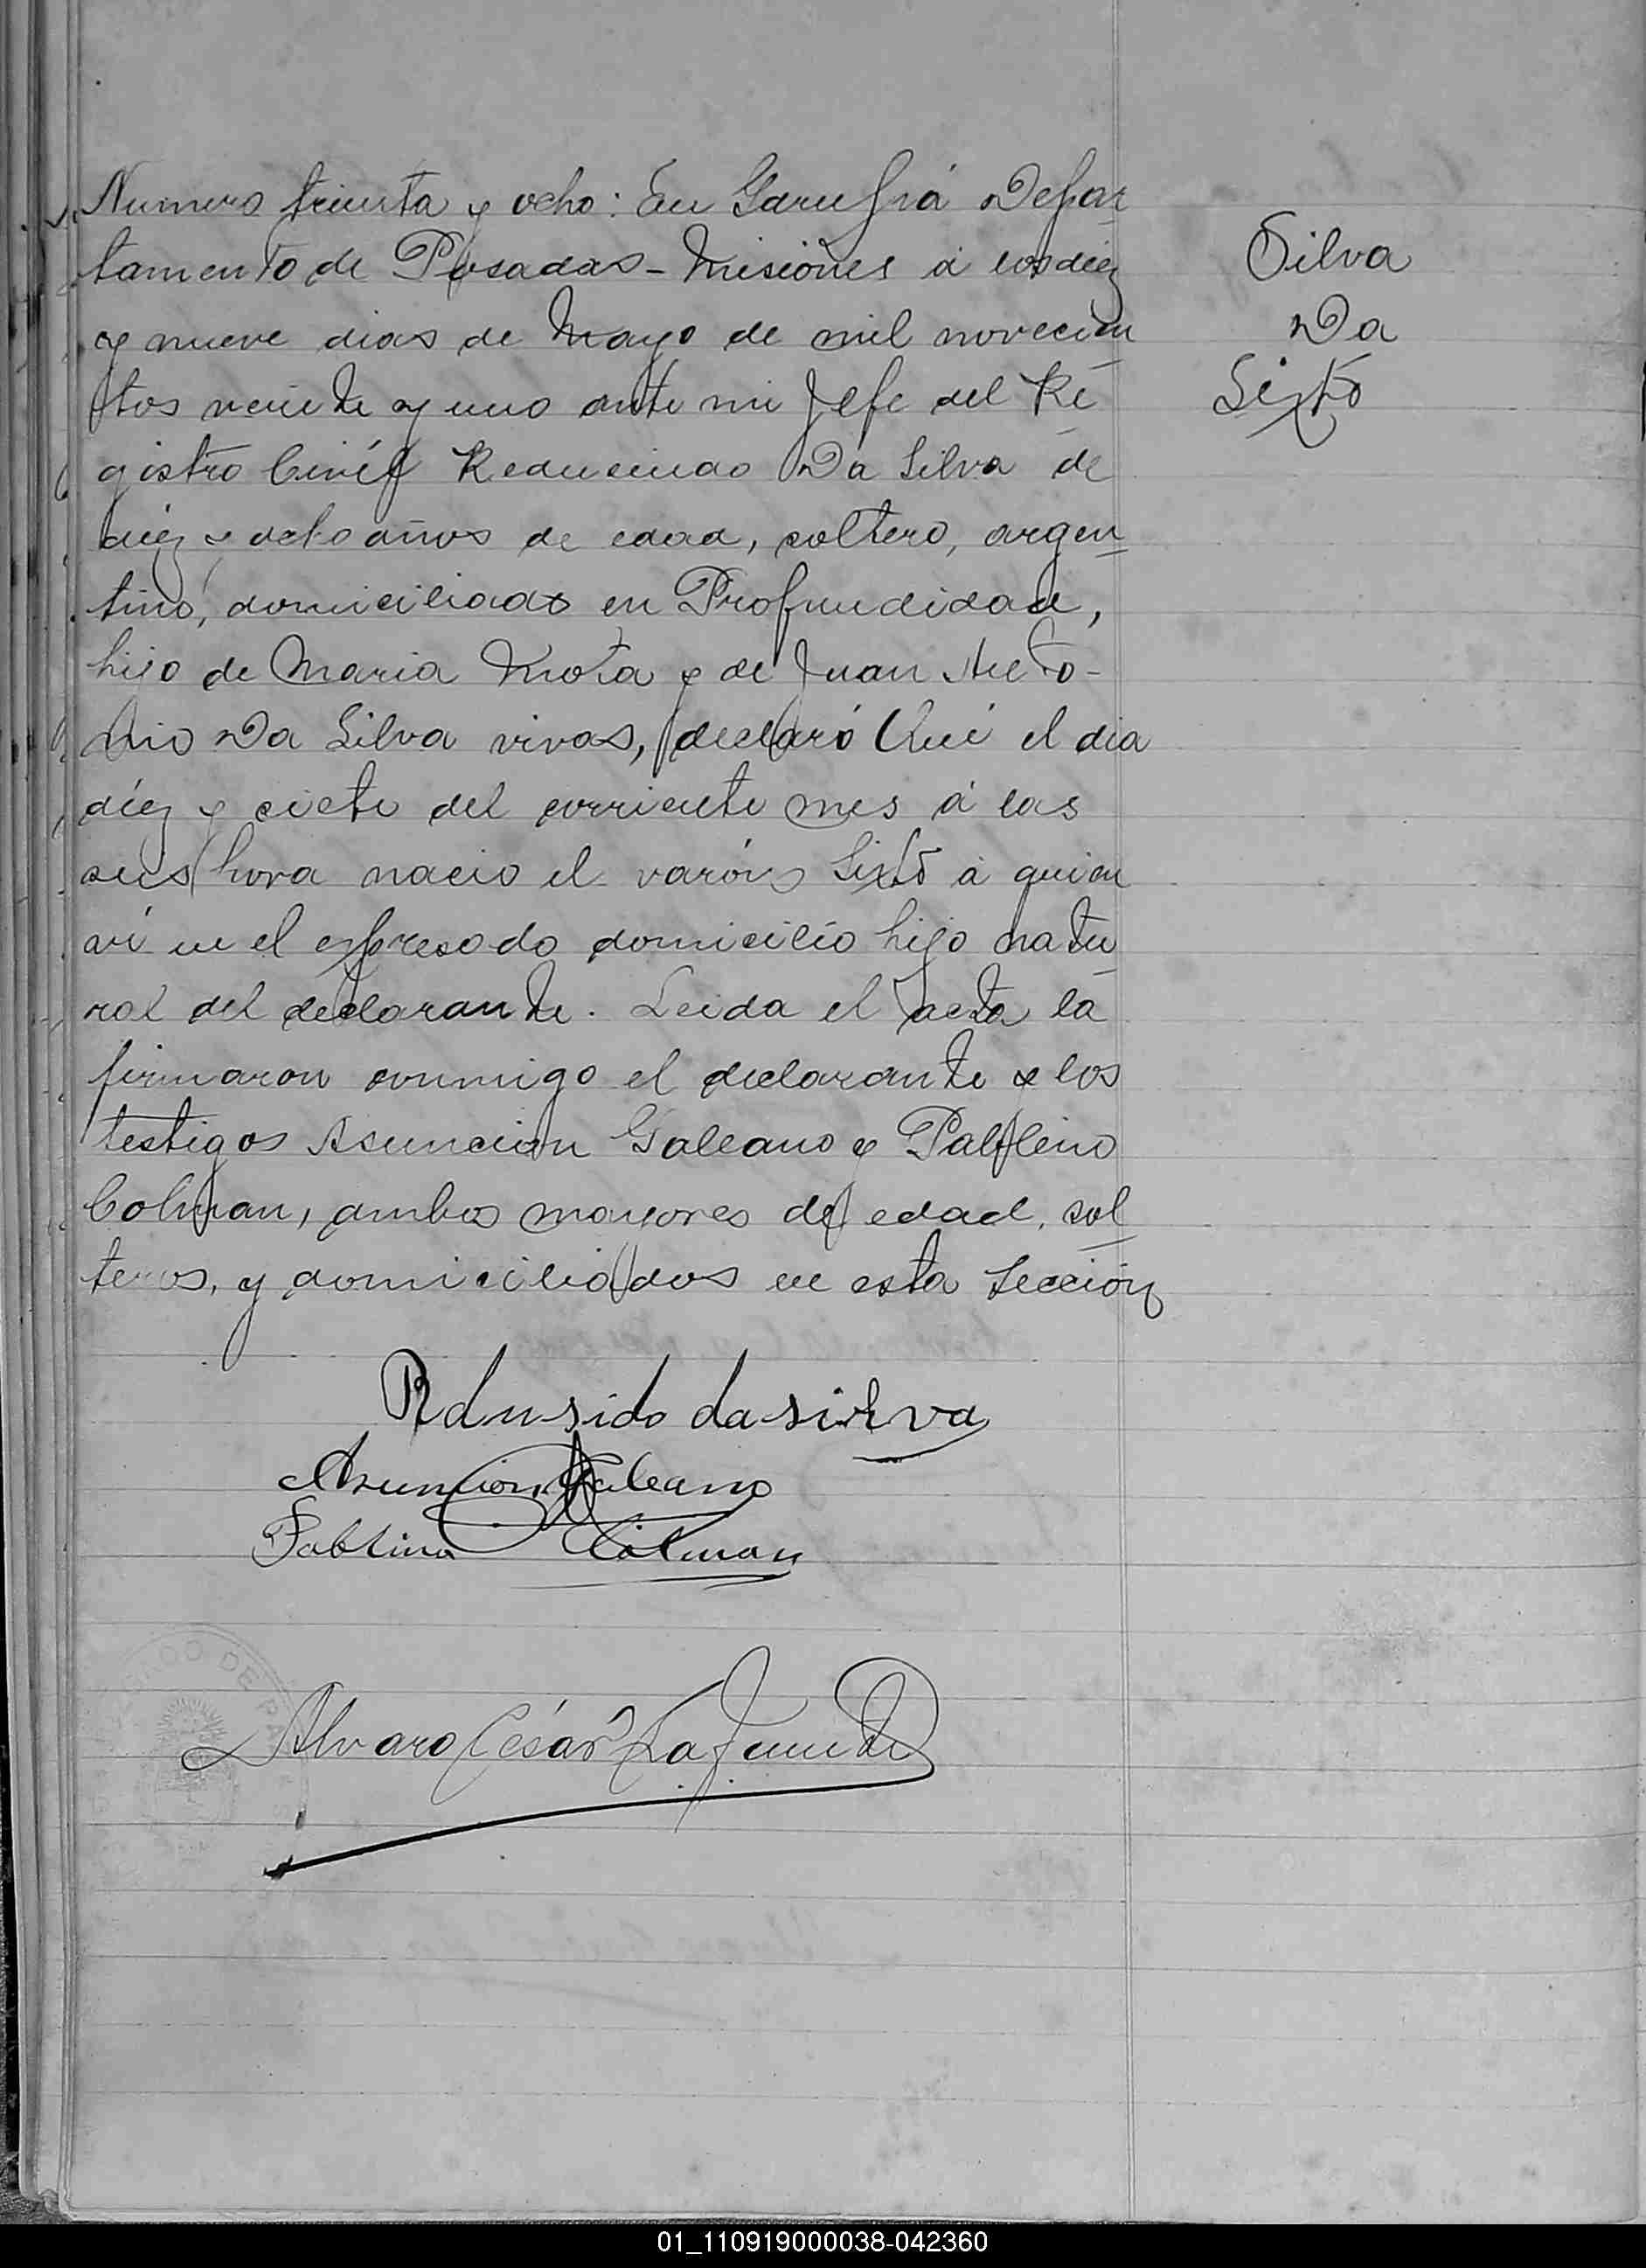 Numero treinta y ocho: En Garupá Depar
tamento de Posadas - Misiones á los diez
y nueve dias de Mayo de mil novecien
tos veinte y uno ante mi Jefe del Re
gistro Civíl Reducindo Da Silva de
diez y ocho años de edad, soltero, argen
tino, domiciliado en Profundidad,
hijo de Maria Mota y de Juan Anto-
nio Da Silva vivos, declaró Que el dia
diez y siete del corriente mes á las
seis hora nacio el varón Sixto á quien
vi en el espresado domicilio hijo natu
ral del declarante. Leida el acta la
firmaron conmigo el declarante y los
testigos Asuncion Galeano y
Colman, ambos mayores de edad, sol
teros, y domiciliados en esta Sección
Silva
Da
Sixto
Rdusido da silva
Asuncion Galeano
Pablino Colman
Alvaro César Lafuente
DE PAZ
01_110919000038-042360